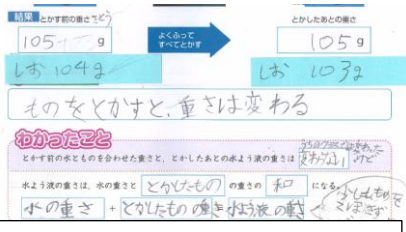 結果 とかす前の重さ さとう
とかしたあとの重さ
105 g
よくふって
すべてとかす
105 g
しお 104g
しお 103g
ものをとかすと、重さは変わる
わかったこと
とかす前の水とものを合わせた重さと、とかしたあとの水よう液の重さは 変わらない けど
水よう液の重さは、水の重さと とかしたもの の重さの 和 になる。
水の重さ + とかしたものの重さ = 水よう液の重さ